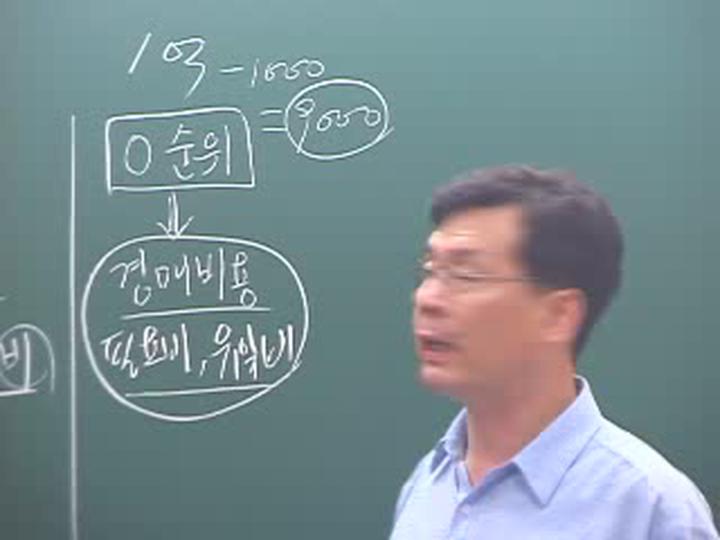 1억 - 1000
0 순위 = 9000
경매비용
필요비, 유익비
비